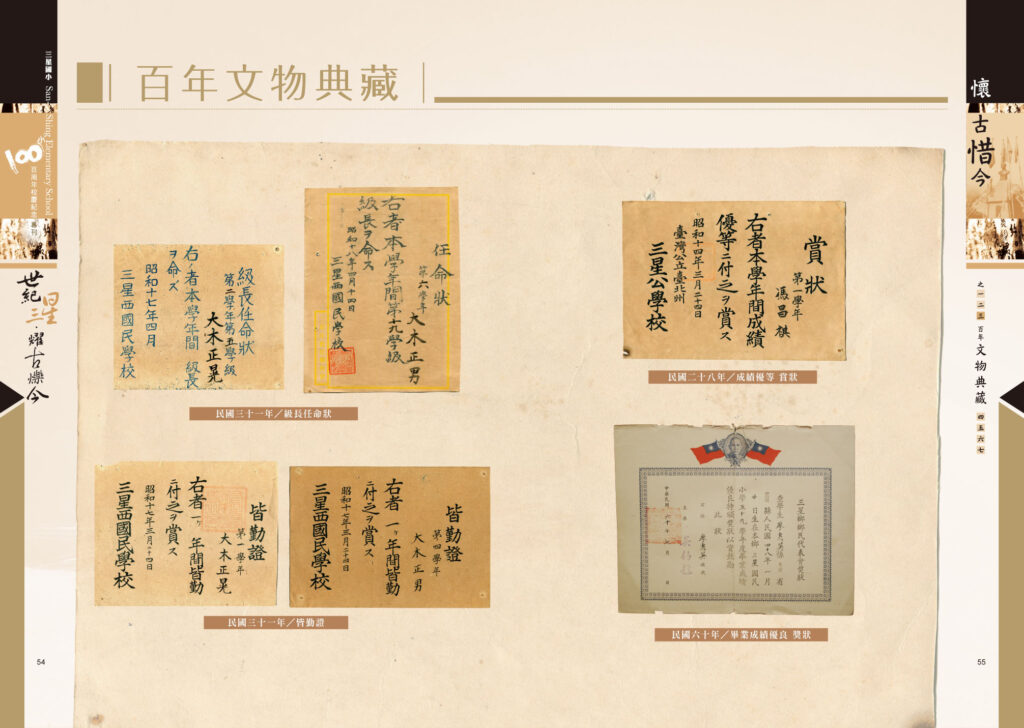 三星國小 San-Shing Elementary School
100
百周年校慶紀念專刊
世紀三星・耀古爍今
百年文物典藏
級長任命狀
第二學年第五學級
大木正晃
右者本學年間級長
ヲ命ズ
昭和十七年四月
三星西國民學校
任命狀
第六學年
大木正男
右者本學年間第十九學級
級長ヲ命ス
昭和十八年四月十四日
三星西國民學校
民國三十一年／級長任命狀
皆勤證
第一學年
大木正晃
右者一ヶ年間皆勤
ニ付之ヲ賞ス
昭和十七年三月二十四日
三星西國民學校
皆勤證
第四學年
大木正男
右者一ヶ年間皆勤
ニ付之ヲ賞ス
昭和十七年三月二十四日
三星西國民學校
民國三十一年／皆勤證
賞狀
第一學年
馮昌祺
右者本學年間成績
優等ニ付之ヲ賞ス
昭和十四年三月二十四日
臺灣公立臺北州
三星公學校
民國二十八年／成績優等 賞狀
三星鄉鄉民代表會獎狀
查學生
省
縣人民國四十八年一月
日生在本鄉三星國民
小學五十九學年度畢業成績
優良特頒獎狀以資鼓勵
此狀
中華民國六十年七月
民國六十年／畢業成績優良 獎狀
懷古惜今
之一二三 百年文物典藏 四五六七
54
55